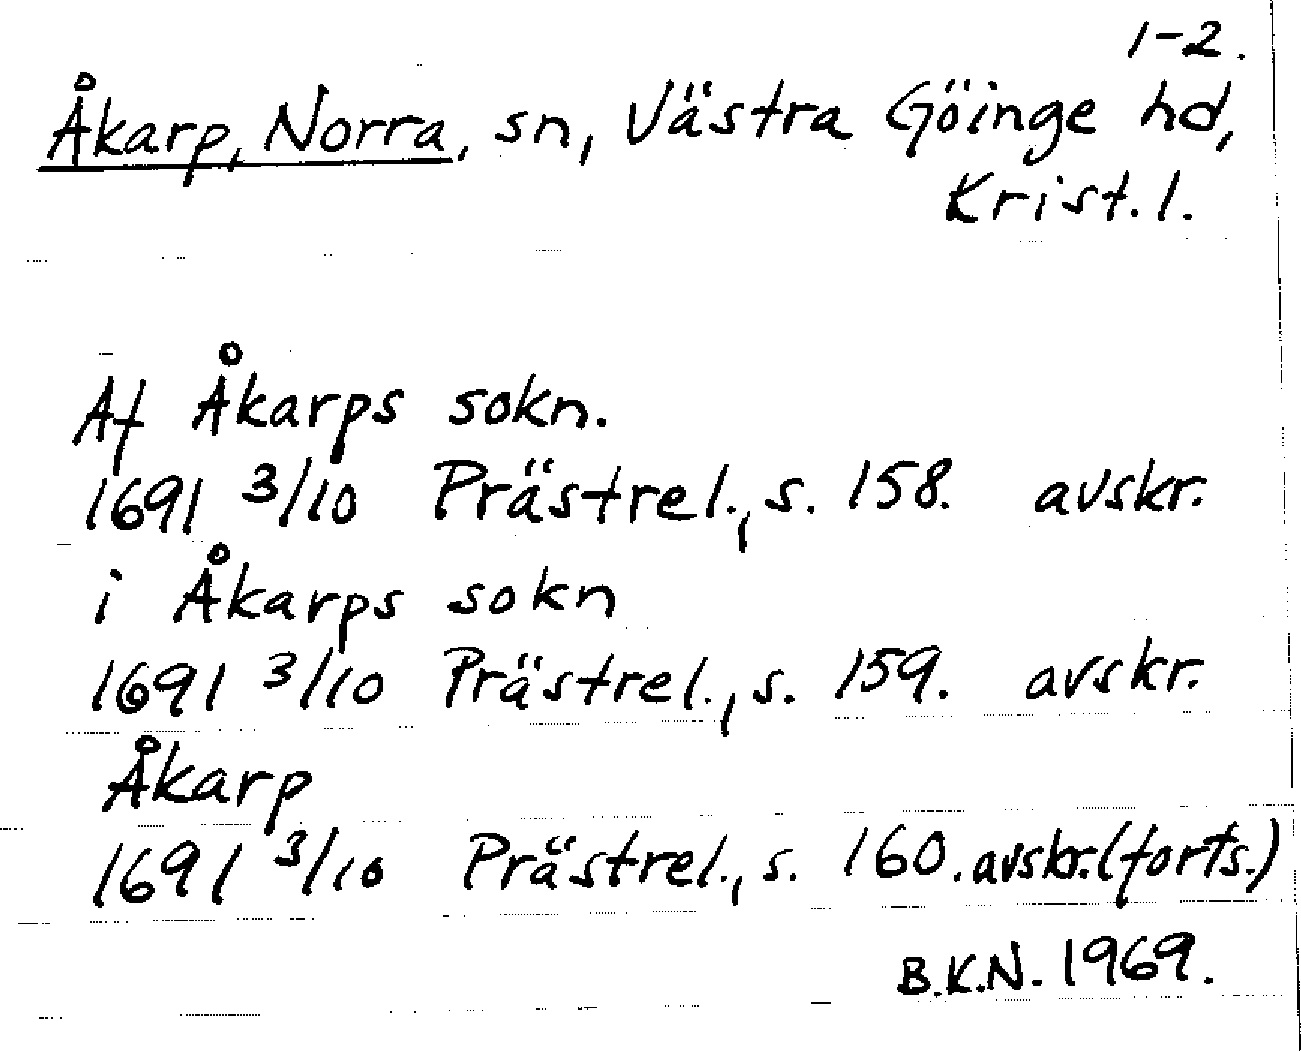 1-2.
Åkarp, Norra, sn, Västra Göinge hd,
Krist. l.
Af Åkarps sokn.
1691 3/10 Prästrel., s. 158. avskr.
i Åkarps sokn
1691 3/10 Prästrel., s. 159. avskr.
Åkarp
1691 3/10 Prästrel., s. 160. avskr. (forts.)
B.K.N. 1969.